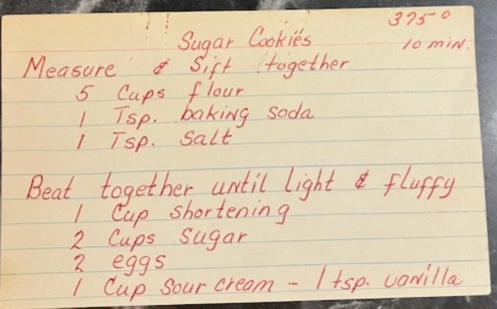 375°
Sugar Cookies 10 min.
Measure & Sift together
5 Cups flour
1 Tsp. baking soda
1 Tsp. Salt
Beat together until light & fluffy
1 Cup shortening
2 Cups Sugar
2 eggs
1 Cup Sour cream - 1 tsp. vanilla